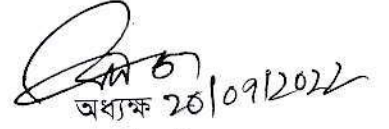 অধ্যক্ষ 20/09/2022